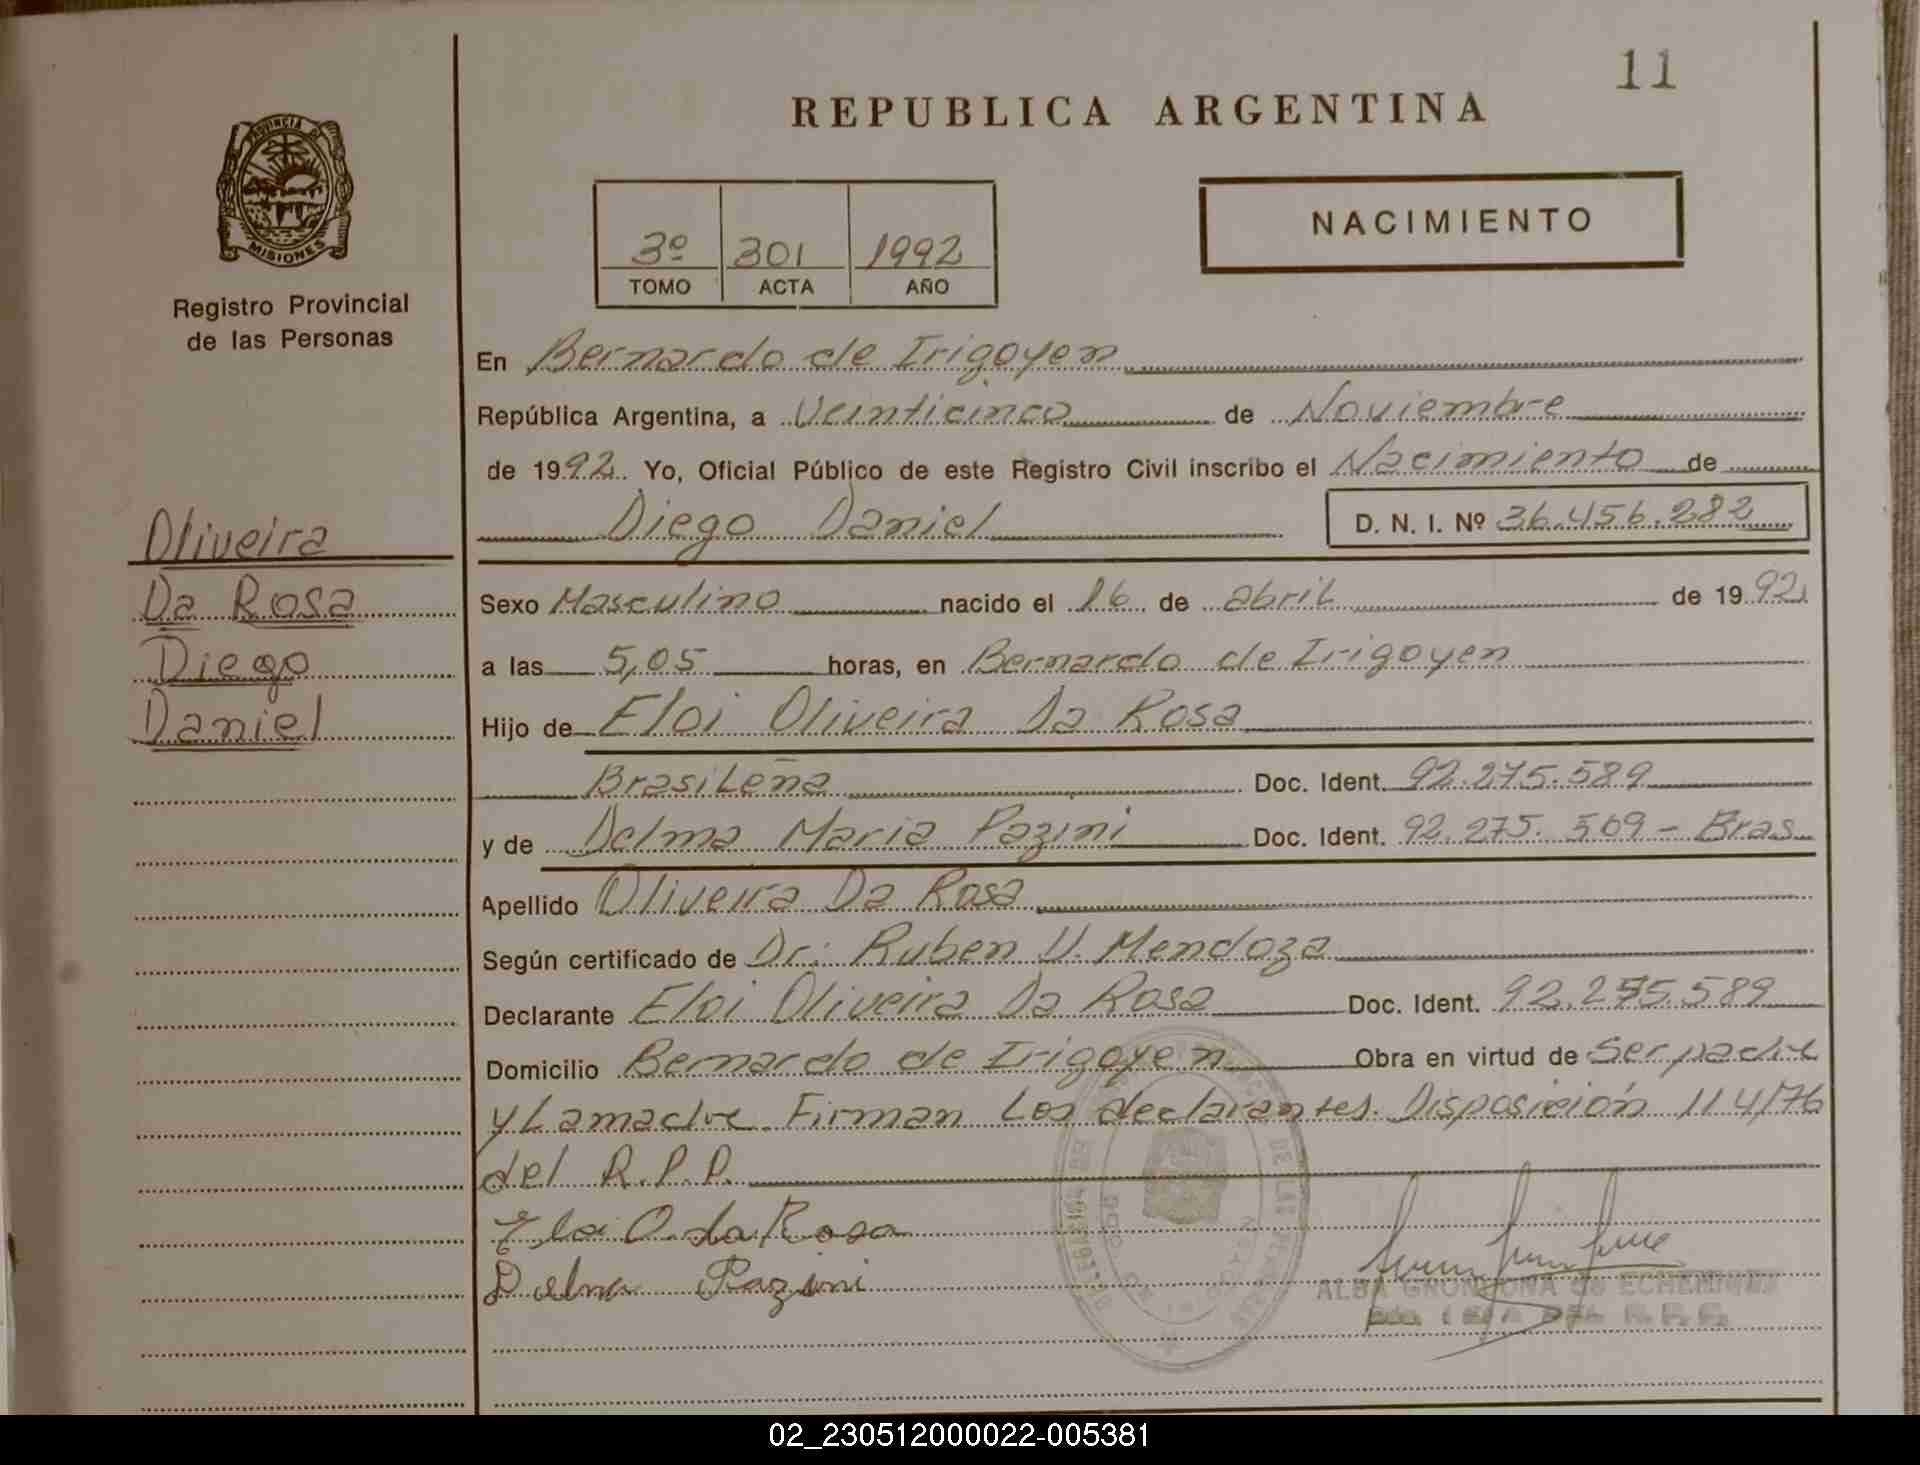 11
REPUBLICA ARGENTINA
PROVINCIA DE
MISIONES
Registro Provincial
de las Personas
3º 301 1992
TOMO ACTA AÑO
NACIMIENTO
En Bernardo de Irigoyen
República Argentina, a Veinticinco de Noviembre
de 1992. Yo, Oficial Público de este Registro Civil inscribo el Nacimiento de
Diego Daniel D. N. I. Nº 36.456.282
Oliveira
Da Rosa
Diego
Daniel
Sexo Masculino nacido el 16 de abril de 1992
a las 5,05 horas, en Bernardo de Irigoyen
Hijo de Eloi Oliveira Da Rosa
Brasileña Doc. Ident. 92.275.589
y de Delma Maria Pazini Doc. Ident. 92.275.509 - Bras
Apellido Oliveira Da Rosa
Según certificado de Dr: Ruben V. Mendoza
Declarante Eloi Oliveira Da Rosa Doc. Ident. 92.275.589
Domicilio Bernardo de Irigoyen Obra en virtud de Ser padre
y La madre. Firman Los declarantes. Disposición 114/76
del R.P.P.
Eloi O. da Rosa
Delma Pazini
ALBA GRONDONA de
02_230512000022-005381